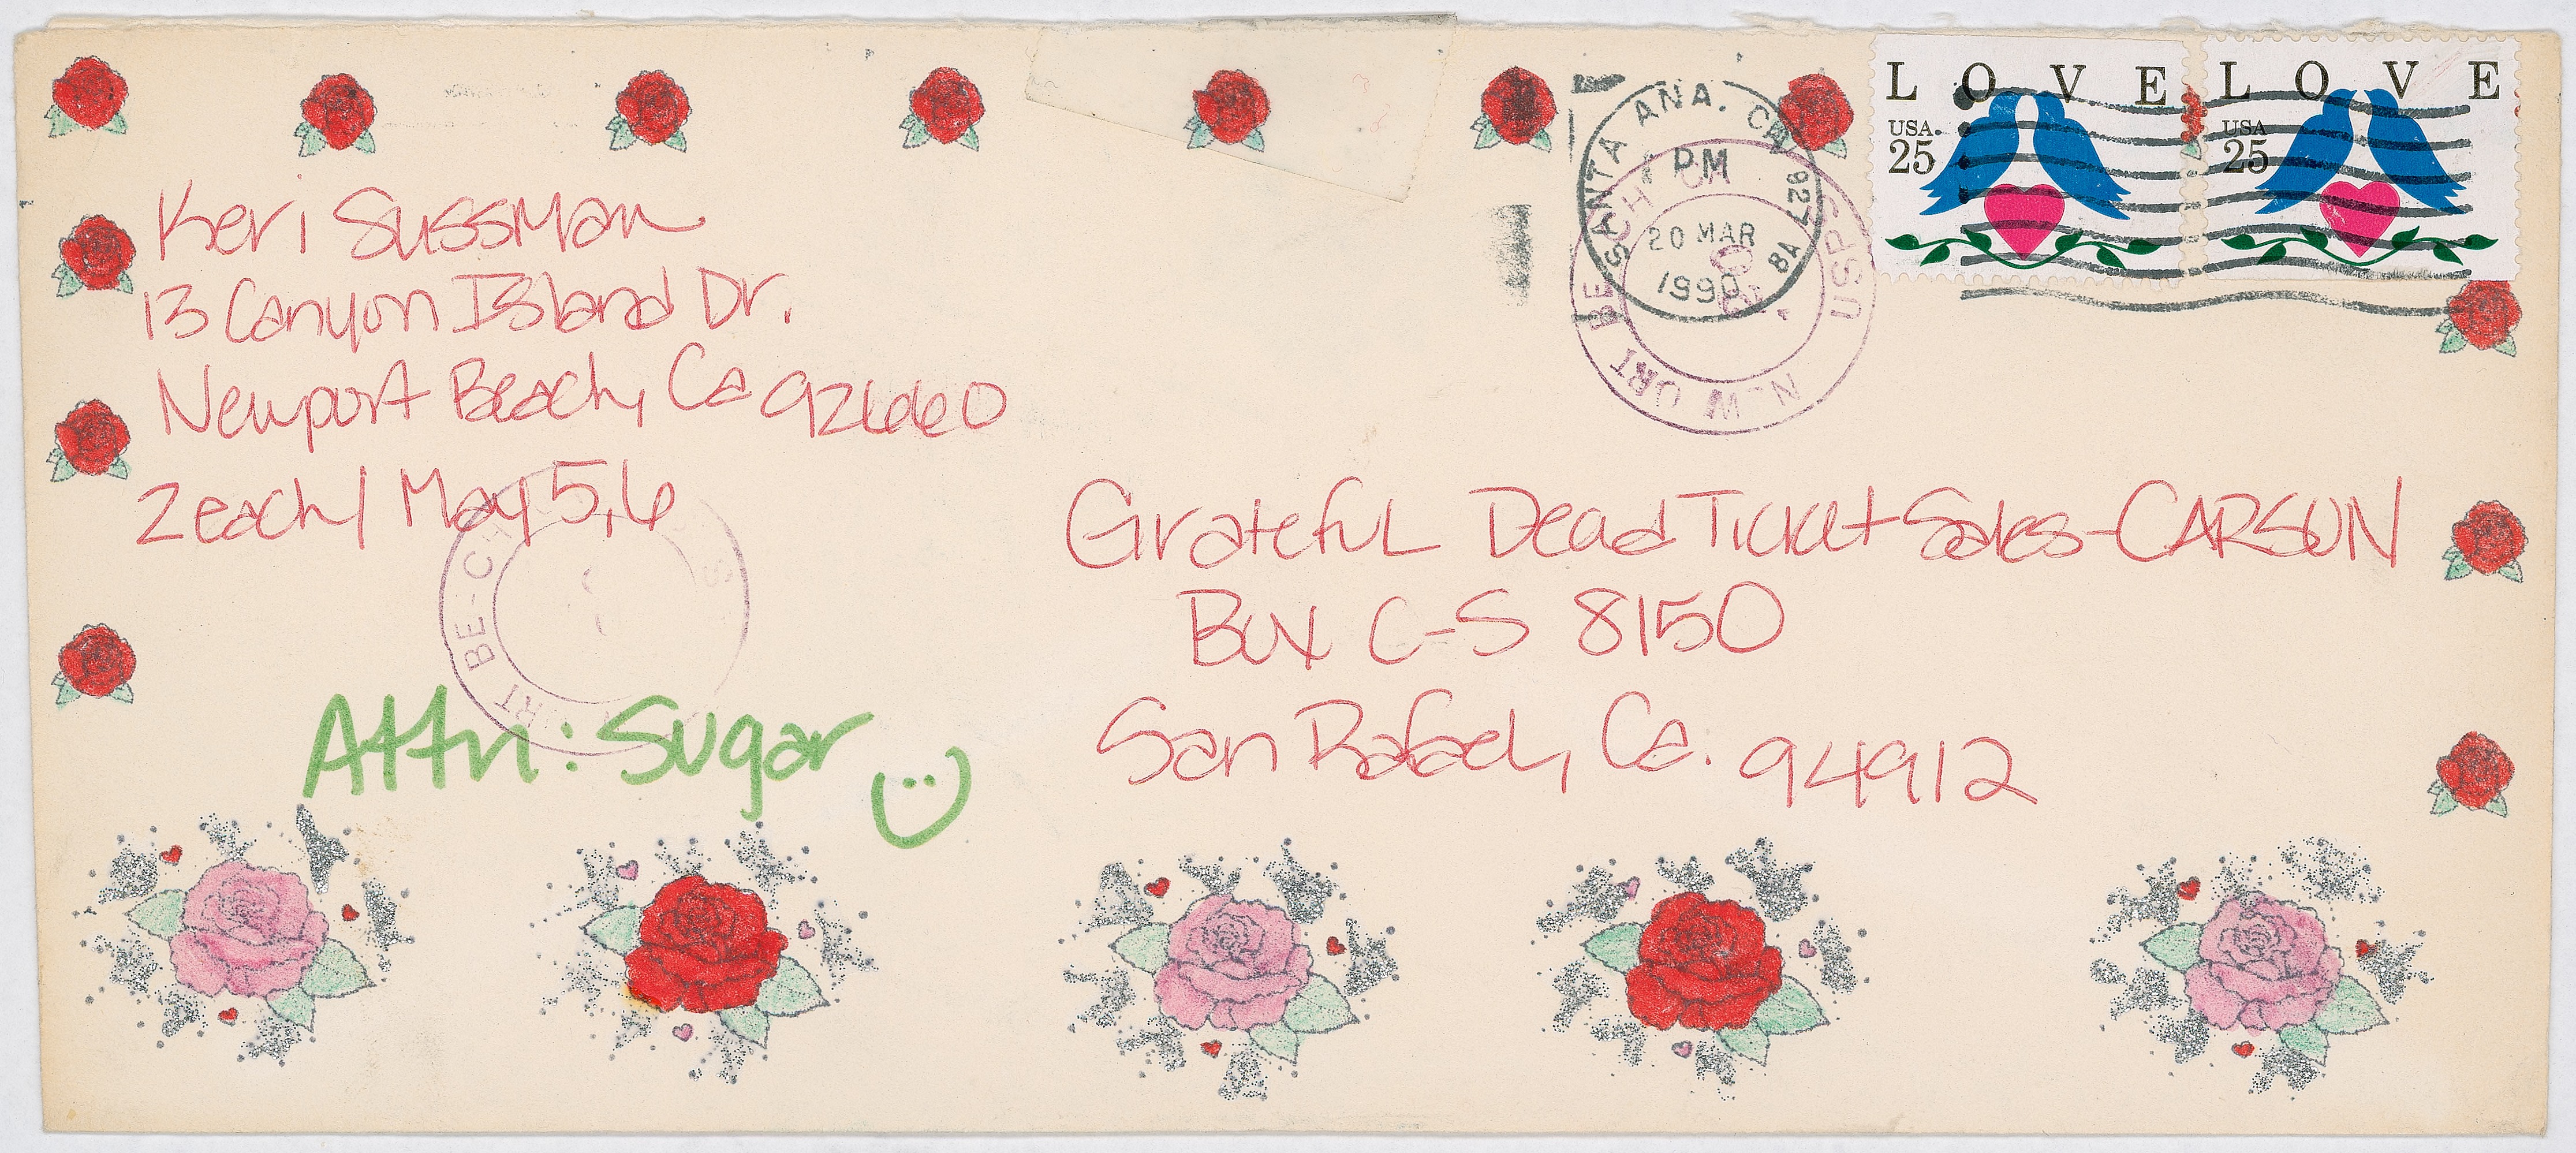 Keri Sussman
13 Canyon Island Dr.
Newport Beach, Ca 92660
2 each / May 5,6
Attn: Sugar
SANTA ANA, CA 927
PM
20 MAR
1990
8A
BEACH CA
USPO
LOVE
USA
25
LOVE
USA
25
Grateful Dead Ticket Sales - CARSON
Box C-S 8150
San Rafael, Ca. 94912